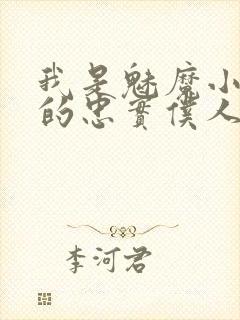 我是魅魔小
的忠實僕人
李河君